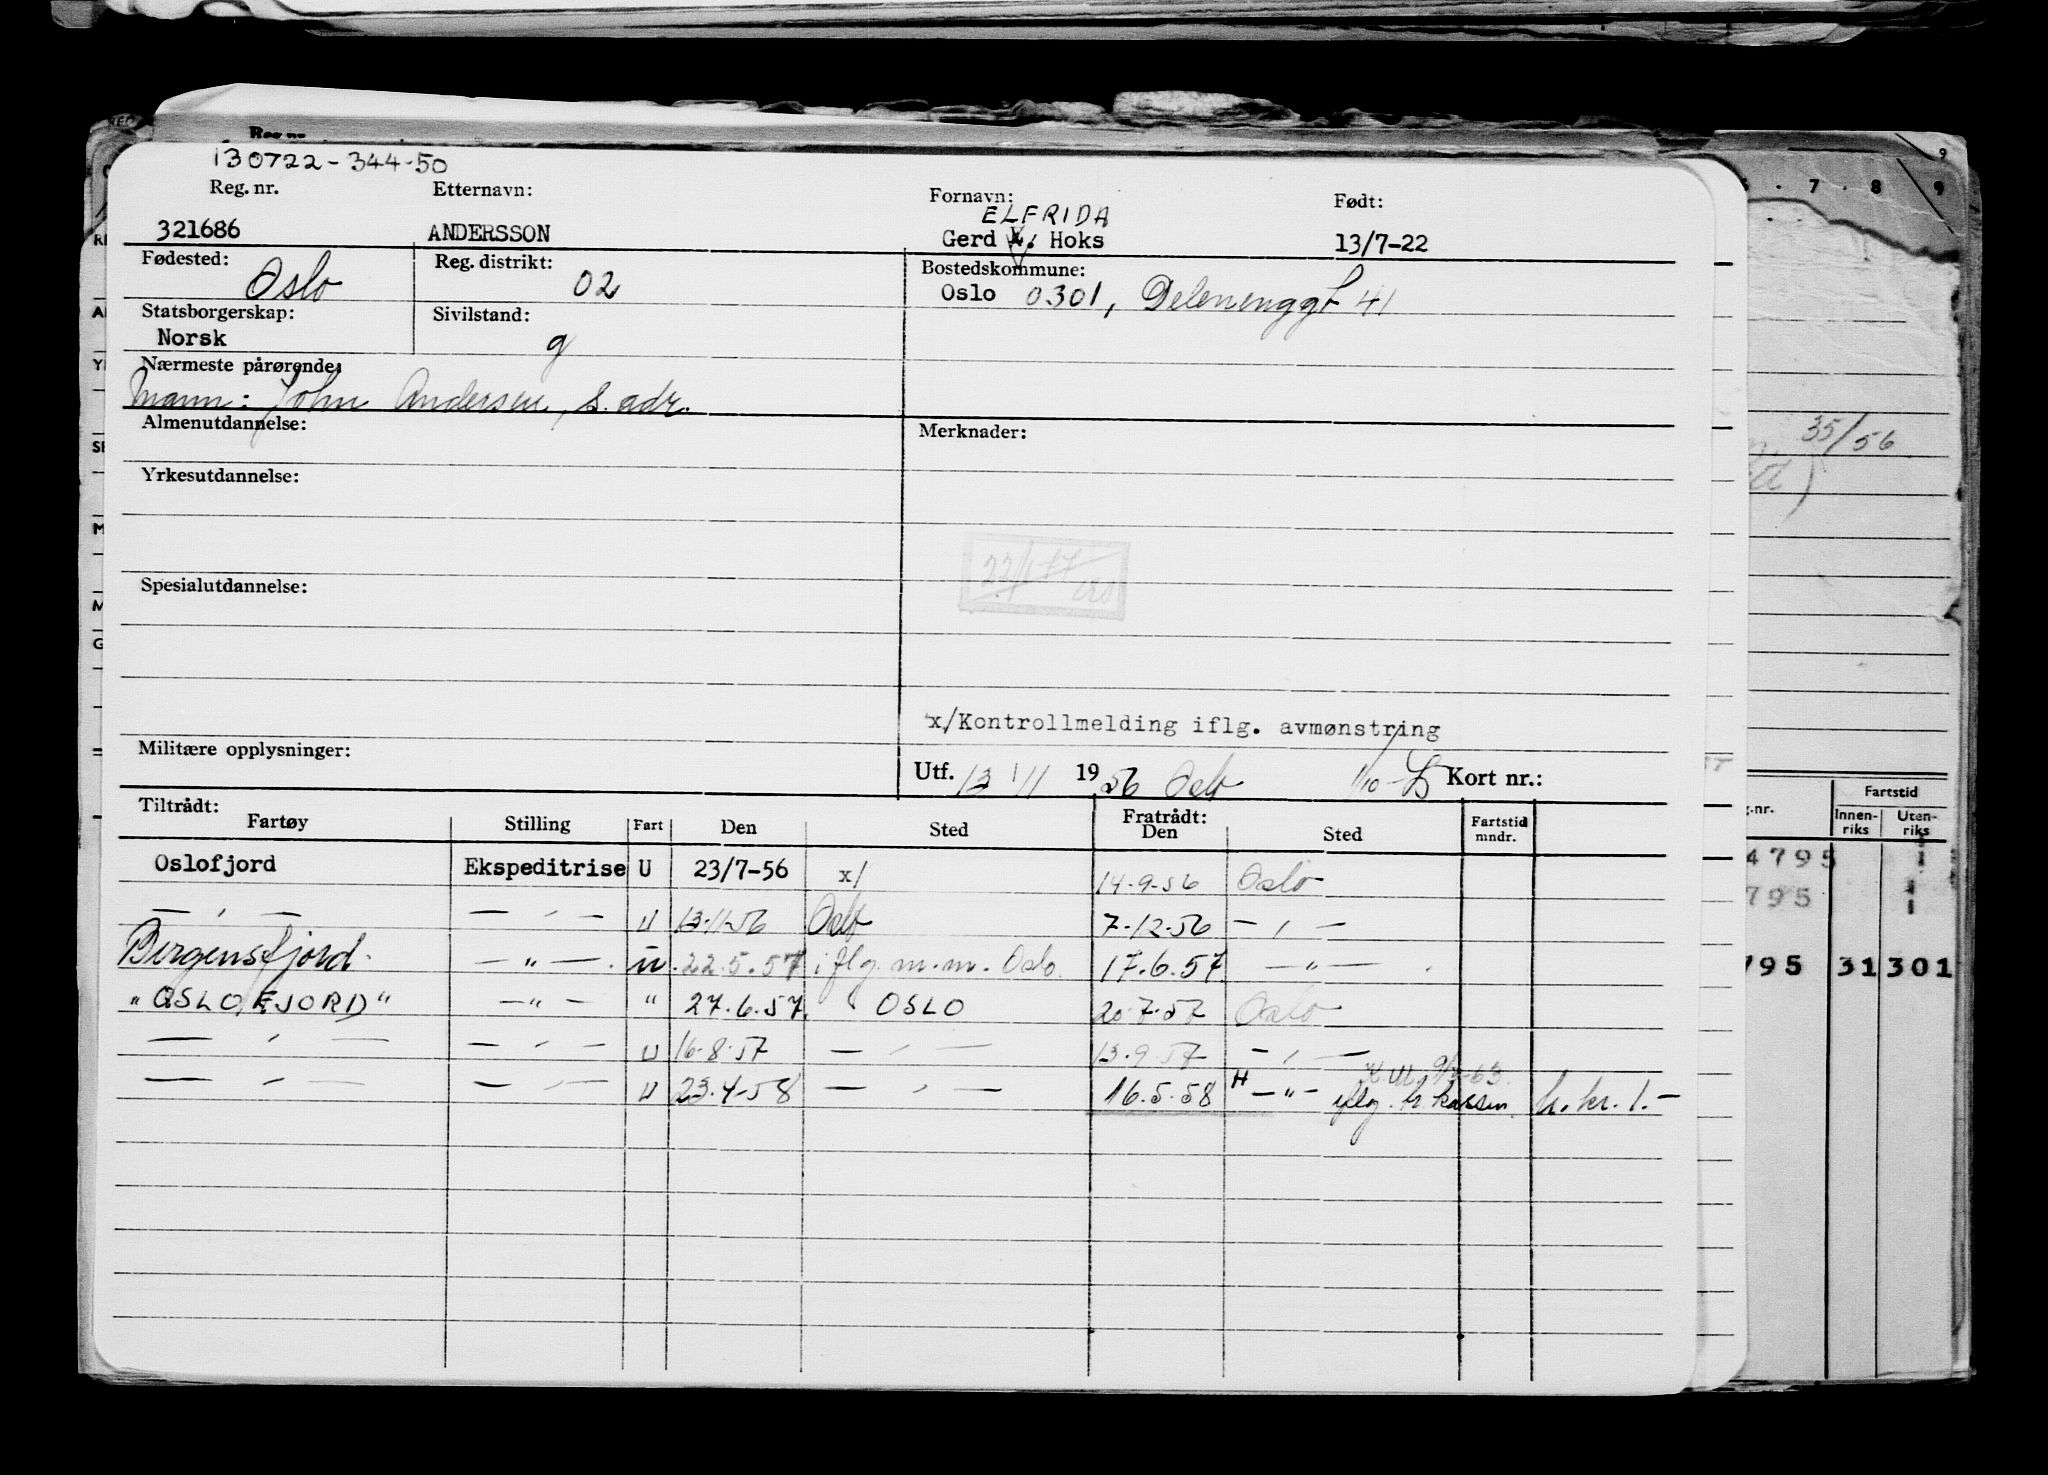 130722-344-50
Reg. nr. Etternavn: Fornavn: Født:
ELFRIDA
321686 ANDERSSON Gerd E. Hoks 13/7-22
Fødested: Oslo Reg. distrikt: 02 Bostedskommune:
Oslo 0301, Delenenggt 41
Statsborgerskap: Sivilstand:
Norsk g
Nærmeste pårørende:
Mann: John Andersen, s. adr.
Almenutdannelse: Merknader:
Yrkesutdannelse:
Spesialutdannelse:
x/Kontrollmelding iflg. avmønstring
Militære opplysninger:
Utf. 13/11 1956 Oslo 1/10- Kort nr.:
Tiltrådt: Fratrådt:
Fartøy Stilling Fart Den Sted Den Sted Fartstid mndr.
Oslofjord Ekspeditrise U 23/7-56 x/ 14.9.56 Oslo
— , — — , — U 13.11.56 Oslo 7.12.56 — , —
Bergensfjord. — " — . u. 22.5.57 iflg. m.m. Oslo. 17.6.57. — " — .
"OSLOFJORD" — " — " 27.6.57. OSLO 20.7.57 Oslo
— , — — , — U 16.8.57 — , — 13.9.57 — , —
— , — — , — U 23.4.58 — , — 16.5.58 H — " — iflg. h. kassen h. kr. 1.-
35/56
. 7 . 8 9
g.nr. Fartstid
Innen-riks Uten-riks
4795
795
795 31 301